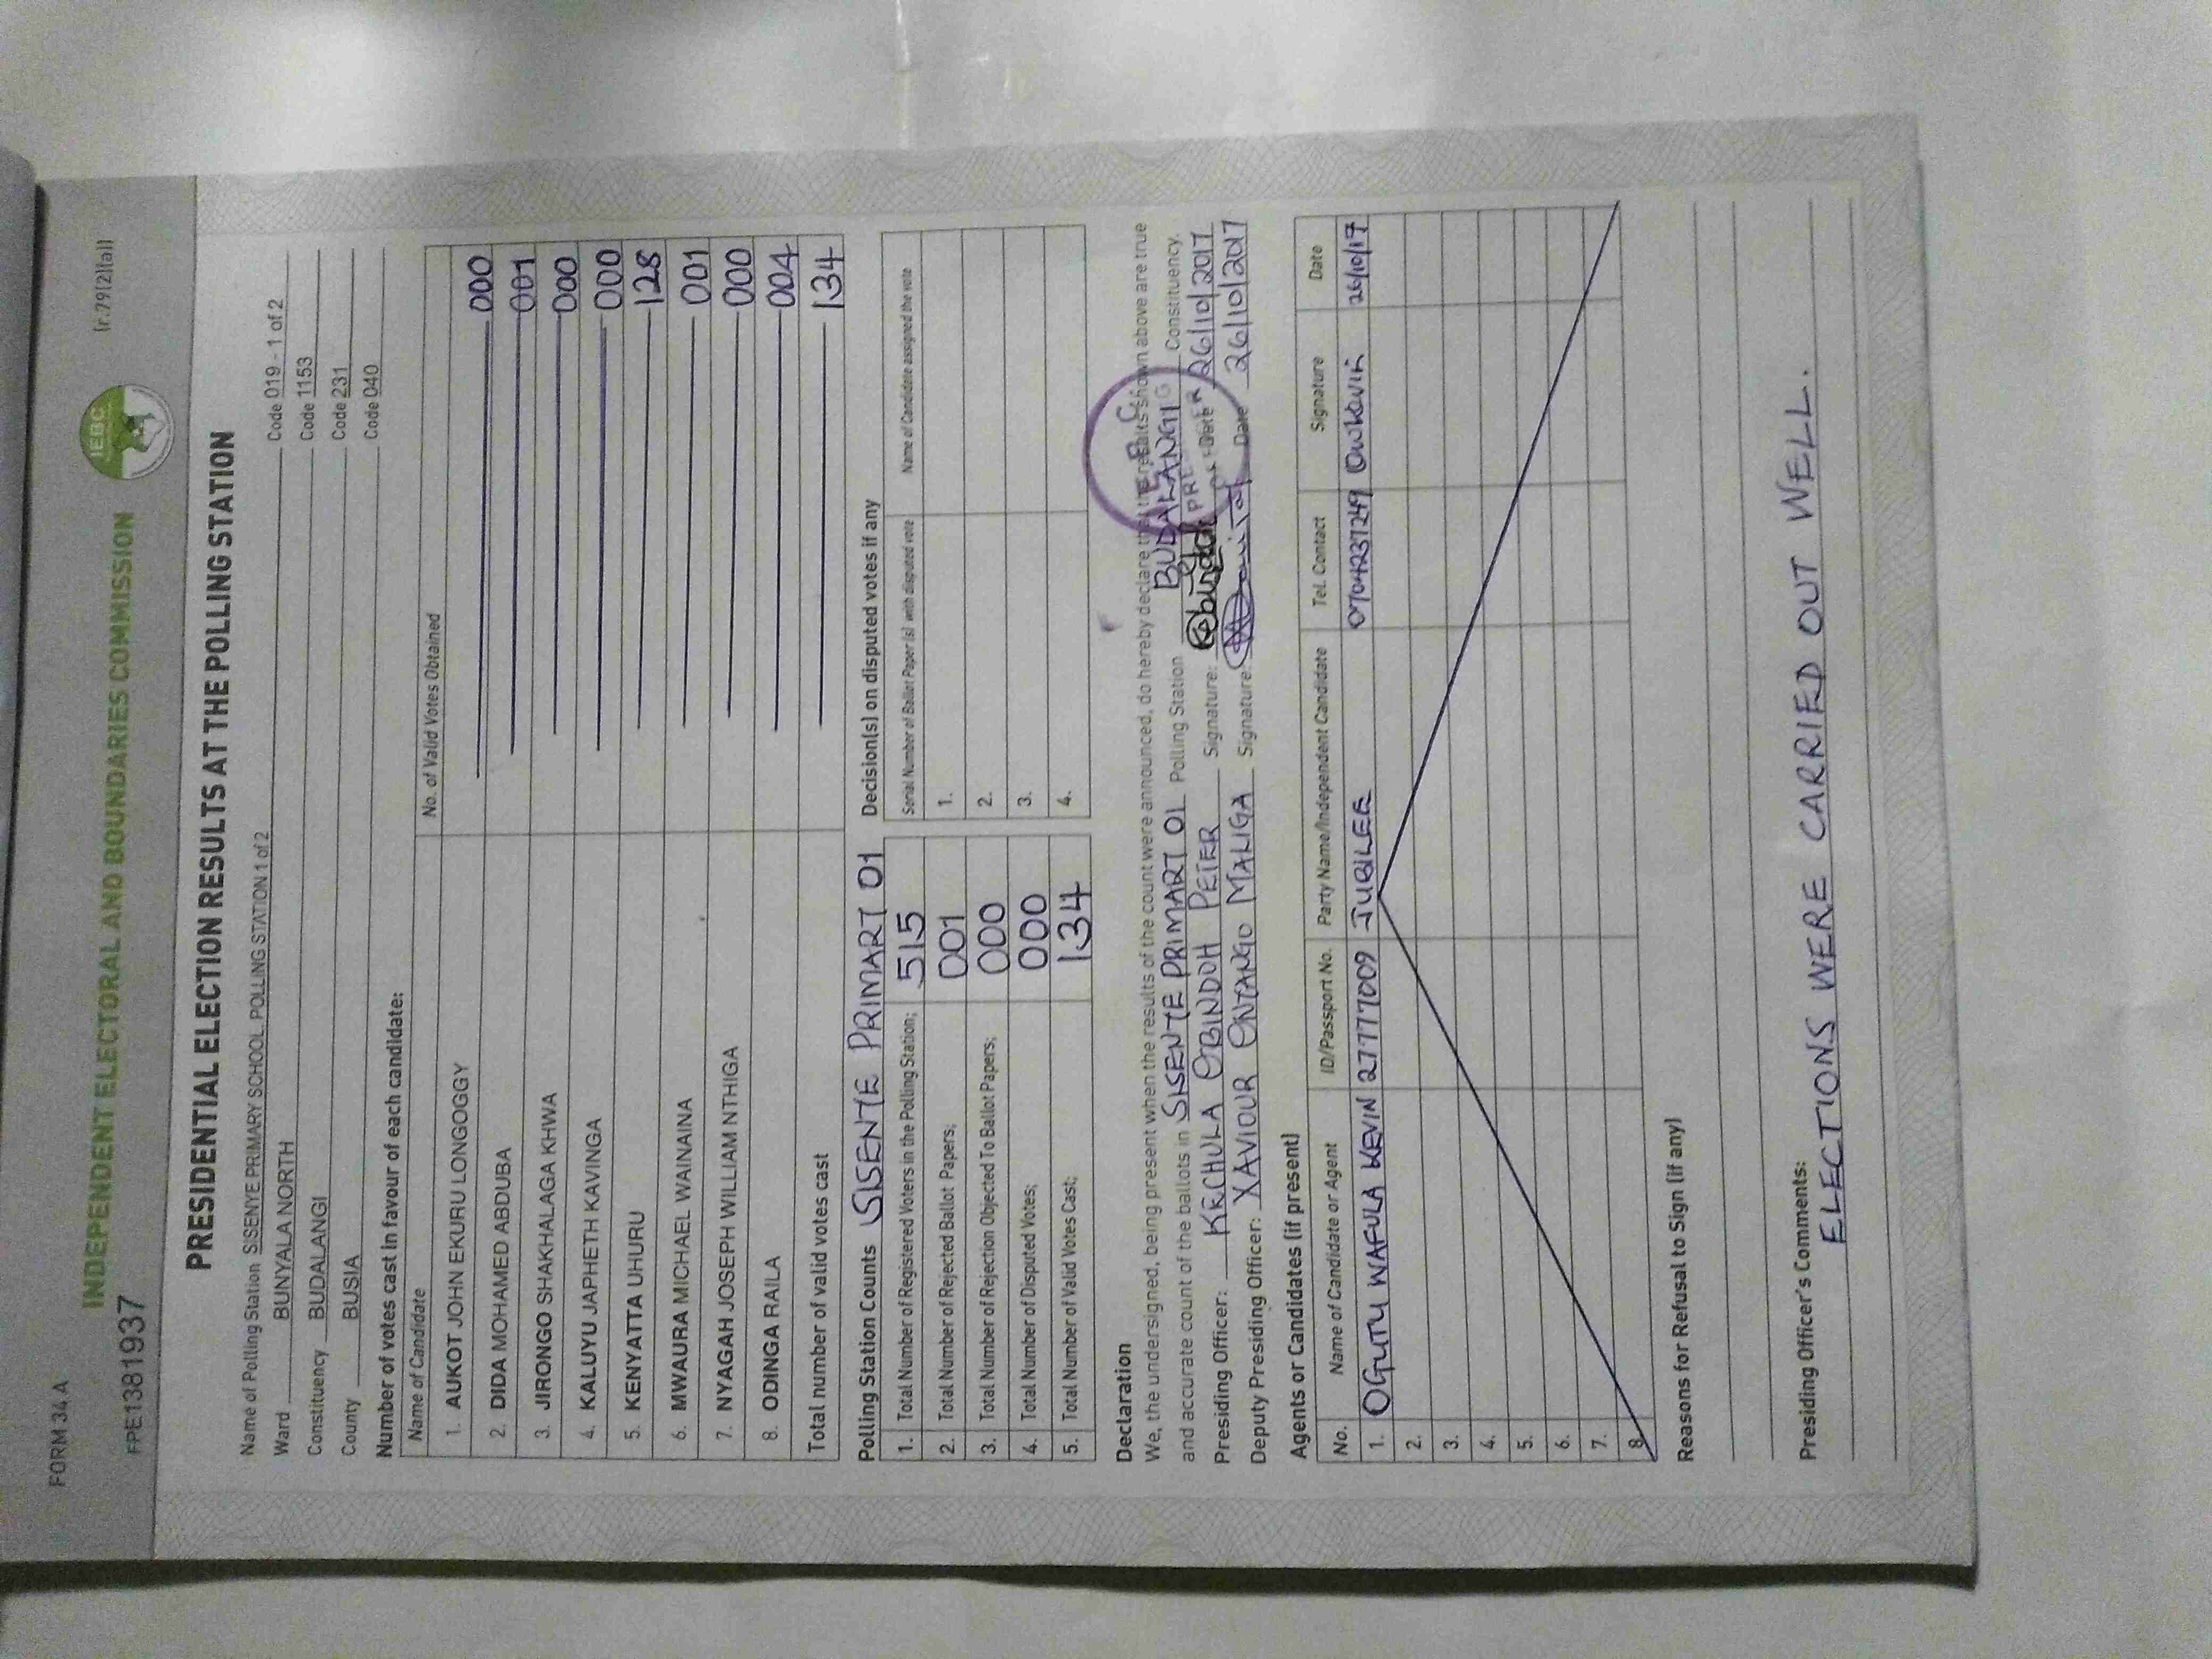 FORM 34 A
(r.79(2)(a))
FPE1381937
INDEPENDENT ELECTORAL AND BOUNDARIES COMMISSION
IEBC
PRESIDENTIAL ELECTION RESULTS AT THE POLLING STATION
Name of Polling Station SISENYE PRIMARY SCHOOL POLLING STATION 1 of 2 Code 019 - 1 of 2
Ward BUNYALA NORTH Code 1153
Constituency BUDALANGI Code 231
County BUSIA Code 040
Number of votes cast in favour of each candidate:
Name of Candidate No. of Valid Votes Obtained
1. AUKOT JOHN EKURU LONGOGGY 000
2. DIDA MOHAMED ABDUBA 001
3. JIRONGO SHAKHALAGA KHWA 000
4. KALUYU JAPHETH KAVINGA 000
5. KENYATTA UHURU 128
6. MWAURA MICHAEL WAINAINA 001
7. NYAGAH JOSEPH WILLIAM NTHIGA 000
8. ODINGA RAILA 004
Total number of valid votes cast 134
Polling Station Counts SISENYE PRIMARY 01 Decision(s) on disputed votes if any
1. Total Number of Registered Voters in the Polling Station; 515
2. Total Number of Rejected Ballot Papers; 001
3. Total Number of Rejection Objected To Ballot Papers; 000
4. Total Number of Disputed Votes; 000
5. Total Number of Valid Votes Cast; 134
Serial Number of Ballot Paper (s) with disputed vote Name of Candidate assigned the vote
1.
2.
3.
4.
Declaration
We, the undersigned, being present when the results of the count were announced, do hereby declare that the results shown above are true
and accurate count of the ballots in SISENYE PRIMARY 01 Polling Station BUDALANGI Constituency.
Presiding Officer: KECHULA OBINDOH PETER Signature: Date 26/10/2017
Deputy Presiding Officer: XAVIOUR ONYANGO MALIGA Signature: Date 26/10/2017
Agents or Candidates (if present)
No. Name of Candidate or Agent ID/Passport No. Party Name/Independent Candidate Tel. Contact Signature Date
1. OGUTU WAFULA KEVIN 27777009 JUBILEE 0704237249 26/10/17
2.
3.
4.
5.
6.
7.
8.
Reasons for Refusal to Sign (if any)
Presiding Officer's Comments:
ELECTIONS WERE CARRIED OUT WELL.